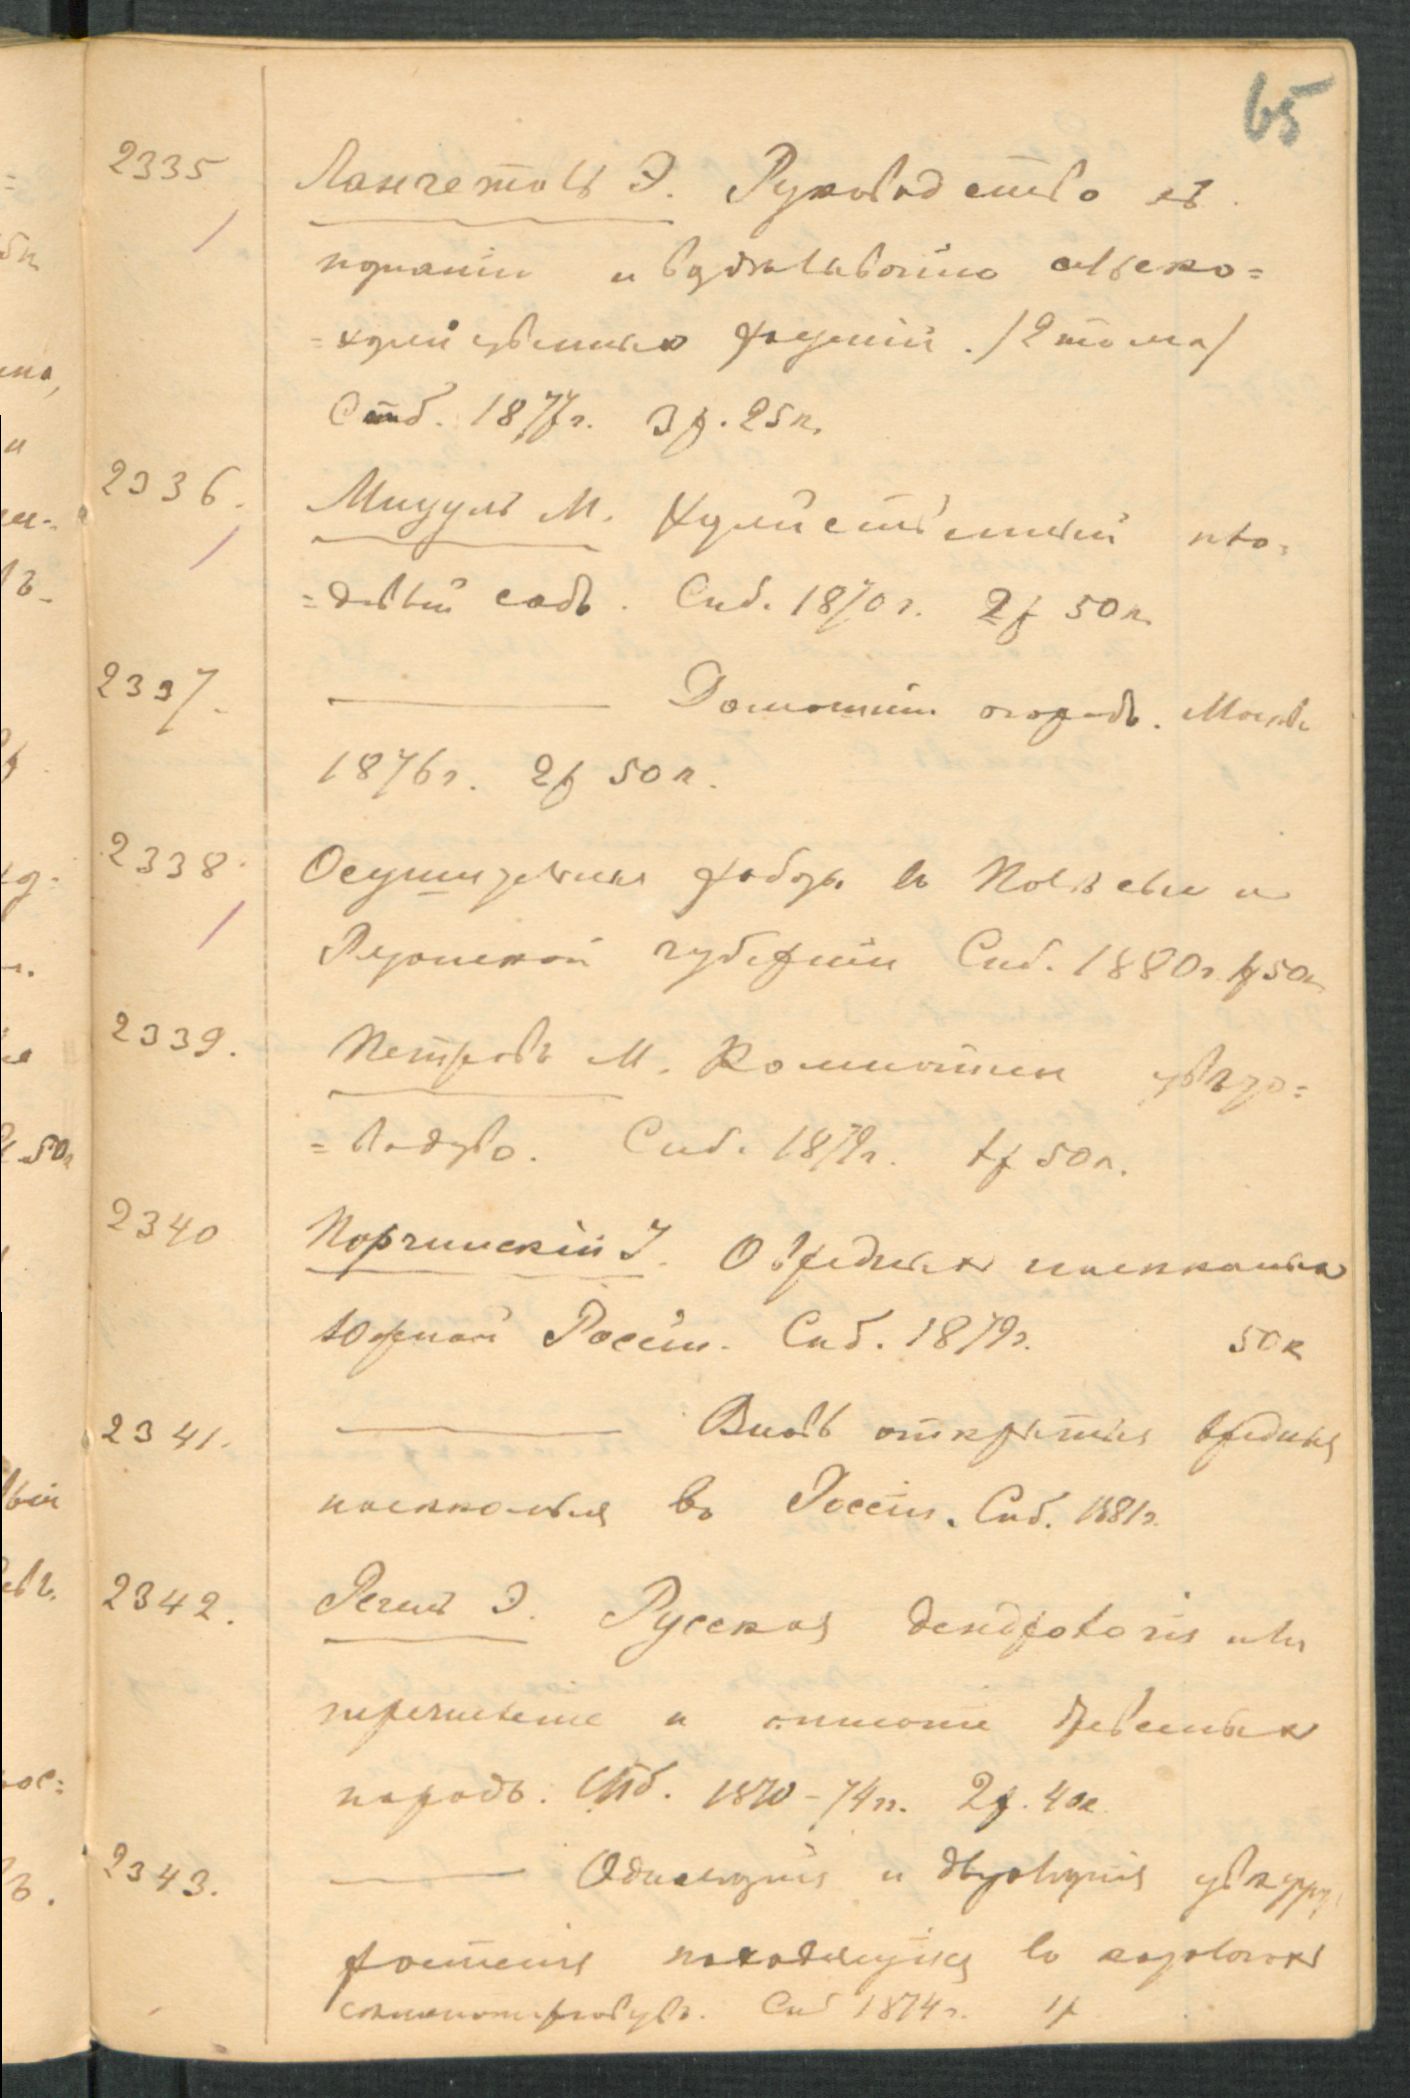 65
2335 Лангетоль Э. Руководство къ
познанію и воздѣлыванію сельско=
=хозяйственныхъ растеній. /2 тома/
Спб. 1877г. 3р. 25к.
2336. Мизуль М. Хозяйственный пло=
=довый садъ. Спб. 1870г. 2р 50к.
2337. Домашній огородъ. Москва
1876г. 2р 50к.
2338. Осушительныя работы въ Полѣсьи и
Рязанской губерніи Спб. 1880г. 1р 50к
2339. Петровъ М. Комнатное цвѣто=
=водство. Спб. 1879г. 1р 50к.
2340 Порчинскій І. О вредныхъ насѣкомыхъ
Южной Россіи. Спб. 1879г. 50к
2341. Вновь открытыя вредныя
насѣкомыя въ Россіи. Спб. 1881г.
2342. Регель Э. Русская дендрологія или
перечисленіе и описаніе древесныхъ
породъ. Спб. 1870-74гг. 2р. 40к
2343. Однолѣтнія и двухлѣтнія
растенія находящіяся въ каталогахъ
Спб 1874г. 1р